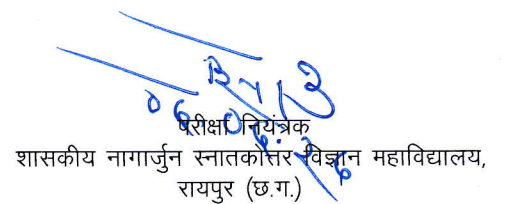 परीक्षा नियंत्रक
शासकीय नागार्जुन स्नातकोत्तर विज्ञान महाविद्यालय,
रायपुर (छ.ग.)